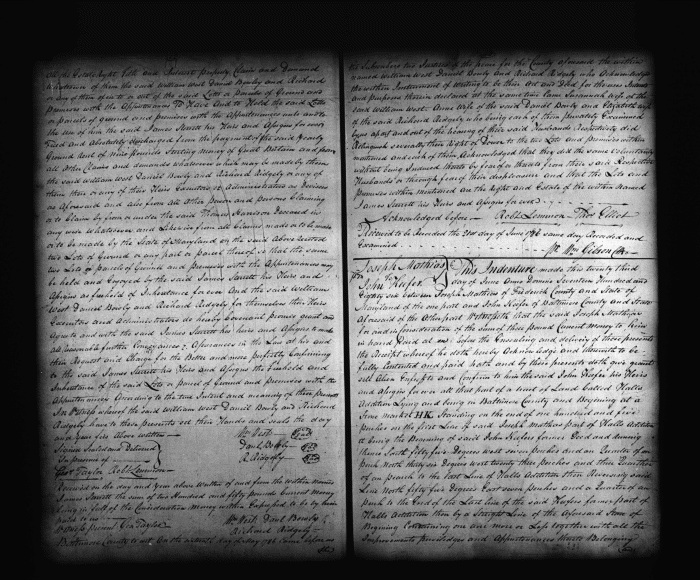 all the Estate Right Title and Interest property Claim and Demand
Whatsoever of them the said William West Daniel Bowly and Richard
or any of them of in to or out of the said Lots or parcels of Ground and
Premises with the Appurtenances To Have And to Hold the said Lots
or parcels of Ground and premises with the Appurtenances unto and to
the use of him the said James Sterett his Heirs and Assigns for every
Freed and Absolutely discharged from the payment of the said yearly
Ground Rent of Nine pounds Sterling Money of Great Britain and from
all Other Claims and demands Whatsoever which may be made by them
the said William West Daniel Bowly and Richard Ridgely or any of
them their or any of their Heirs Executors or Administrators or Devisees
as Aforesaid and also from all Other person and persons Claiming
or to Claim by from or under the said Thomas Harrison Deceased in
any wise Whatsoever and likewise from all Claims made or to be made
or to be made by the State of Maryland on the said above recited
two Lots of Ground or any part or parcel thereof so that the same
two Lots or parcels of Ground and Premises with the Appurtenances may
be held and Enjoyed by the said James Sterett his Heirs and
Assigns as freehold of Inheritance for ever And the said William
West Daniel Bowly and Richard Ridgely for themselves their Heirs
Executors and Administrators do hereby Covenant promise grant and
Agree to and with the said James Sterett his heirs and Assigns to make
all reasonable further Conveyances & Assurances in the Law at his and
their Request and Charge for the Better and more perfectly Confirming
to the said James Sterett his Heirs and Assigns the freehold and
Inheritance of the said Lots or parcels of Ground and premises with the
Appurtenances According to the true Intent and meaning of these presents
In Witness whereof the said William West Daniel Bowly and Richard
Ridgely have to these presents set their Hands and Seals the day
and year first above Written
Wm West
Signed Sealed and Delivered
Danl Bowly
In presence of
R. Ridgely
Geo: Taylor Robt Lemmon
Received on the day and year above Written of and from the Within Named
James Sterett the sum of two Hundred and fifty pounds Current Money
being in full of the Consideration Money within Expressed to be by him
paid to us
Wm West Danl Bowly
Witness present Geo Taylor
Richard Ridgely
Baltimore County to wit On the day of May 1786 Came before us
the Subscribers two Justices of the peace for the County aforesaid the within
named William West Daniel Bowly and Richard Ridgely who Acknowledged
the within Instrument of writing to be their Act and Deed for the uses Intents
and Purposes therein declared at the same time Came Susannah Wife of the
said William West Anne Wife of the said Daniel Bowly and Elizabeth Wife
of the said Richard Ridgely who being each of them privately Examined
by us apart and out of the hearing of their said Husbands Respectively did
Relinquish severally their Right of Dower to the two Lots and premises within
mentioned and each of them Acknowledged that they did the same Voluntarily
without being Induced thereto by fear or threats from their said Respective
Husbands or through fear of their displeasure and that the Lots and
Premises within mentioned are the Right and Estate of the within Named
James Sterett his Heirs and Assigns for ever
Acknowledged before Robt Lemmon Thos Elliot
Received to be Recorded the 21st day of June 1786 same day Recorded and
Examined
Pr Wm Gibson Clk
Joseph Mathias
To
John Keefer
This Indenture made this twenty third
day of June Anno Domini Seventeen Hundred and
Eighty six Between Joseph Mathias of Frederick County and State of
Maryland of the one part and John Keefer of Baltimore County and State
Aforesaid of the Other part Witnesseth that the said Joseph Mathias
for and in consideration of the sum of three pounds Current Money to him
in hand paid at and before the Ensealing and delivery of these presents
the Receipt whereof he doth hereby Acknowledge and thereunto to be
fully Contented and paid hath and by these presents doth give grant
sell Alien Enfeoff and Confirm to him the said John Keefer his Heirs
and Assigns for ever all that part of a tract of Land Called Halls
Addition Lying and being in Baltimore County and Beginning at a
stone marked HK Standing on the end of one hundred and five
perches on the first Line of said Joseph Mathias part of Halls Addition
it being the Beginning of said John Keefers former Deed and running
thence South fifty five Degrees West seven perches and an Quarter of an
perch North thirty six Degrees West twenty three perches and three Quarters
of an perch to the last Line of Halls Addition then Reversely said
Line North fifty five Degrees East seven perches and a Quarter of an
perch to the End of the Last Line of the said Keefers former part of
Halls Addition then by a Straight Line to the Aforesaid Stone of
Beginning Containing one acre more or Less together with all the
Improvements Priviledges and Appurtenances thereto Belonging